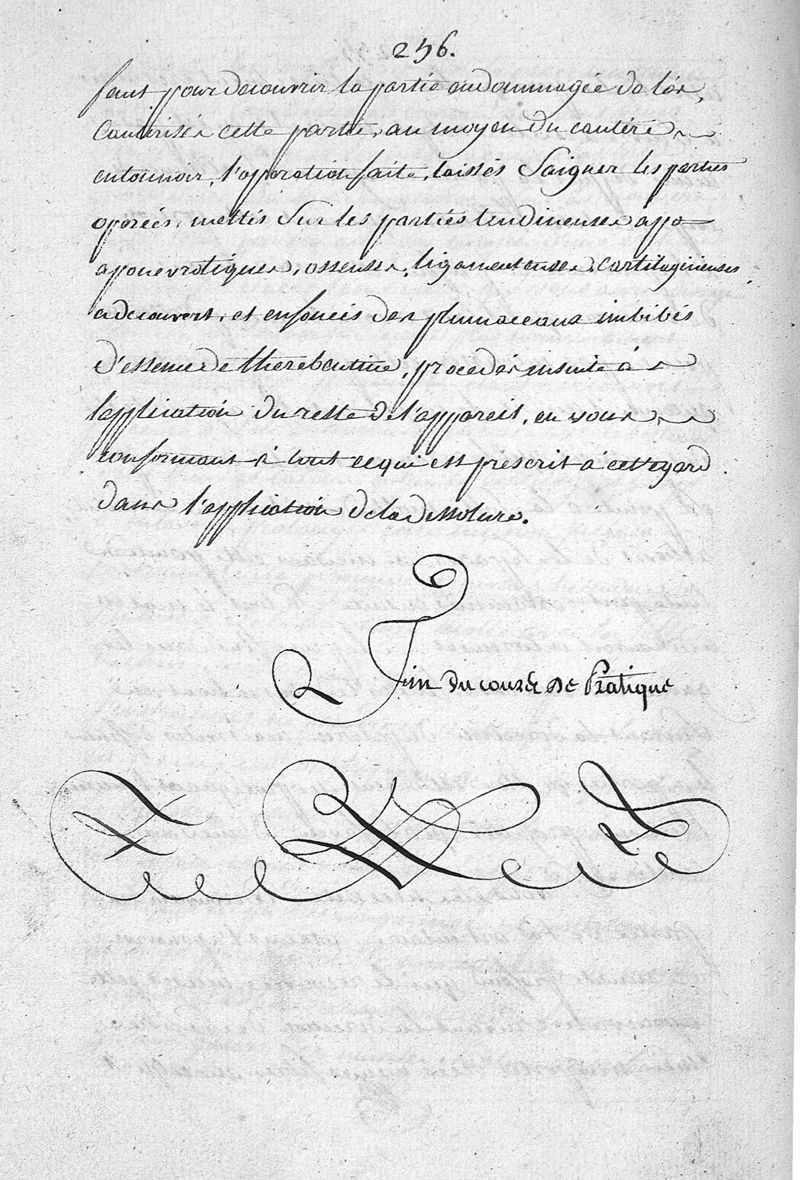 256.
faut pour decouvrir la partie endommagée de l'os,
Cauterisés cette partie, au moyen du cautére
entonnoir, l'operation faite, laissés Saigner les parties
operées, mettés Sur les parties tendineuses apo-
aponevrotiques, osseuses, ligamenteuses cartilagineuses
a decouvert, et enfoncés des plumaceaux imbibés
d'essence de therebentine, procedes ensuite à
l'application du reste de l'appareil, en vous
conformant à tout ce qui est prescrit à cet egard
dans l'application de la dessolure.
Fin du cours de Pratique